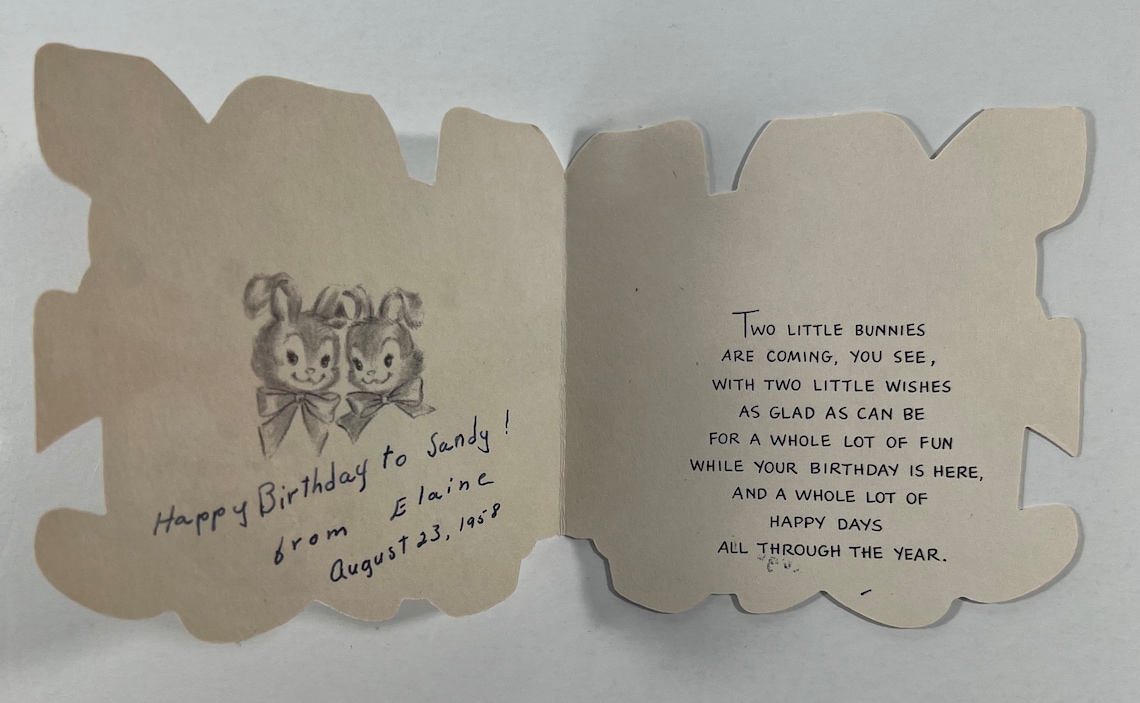 Happy Birthday to Sandy!
from Elaine
August 23, 1958
TWO LITTLE BUNNIES
ARE COMING, YOU SEE,
WITH TWO LITTLE WISHES
AS GLAD AS CAN BE
FOR A WHOLE LOT OF FUN
WHILE YOUR BIRTHDAY IS HERE,
AND A WHOLE LOT OF
HAPPY DAYS
ALL THROUGH THE YEAR.